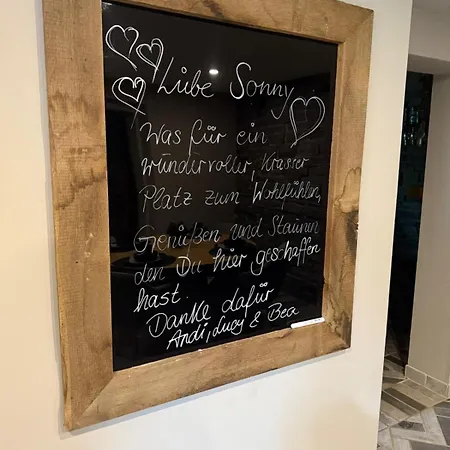 Liebe Sonny
Was für ein
wundervoller, krasser
Platz zum Wohlfühlen,
Genüßen und Staunen
den Du hier geschaffen
hast.
Danke dafür
Andi, Lucy & Bea